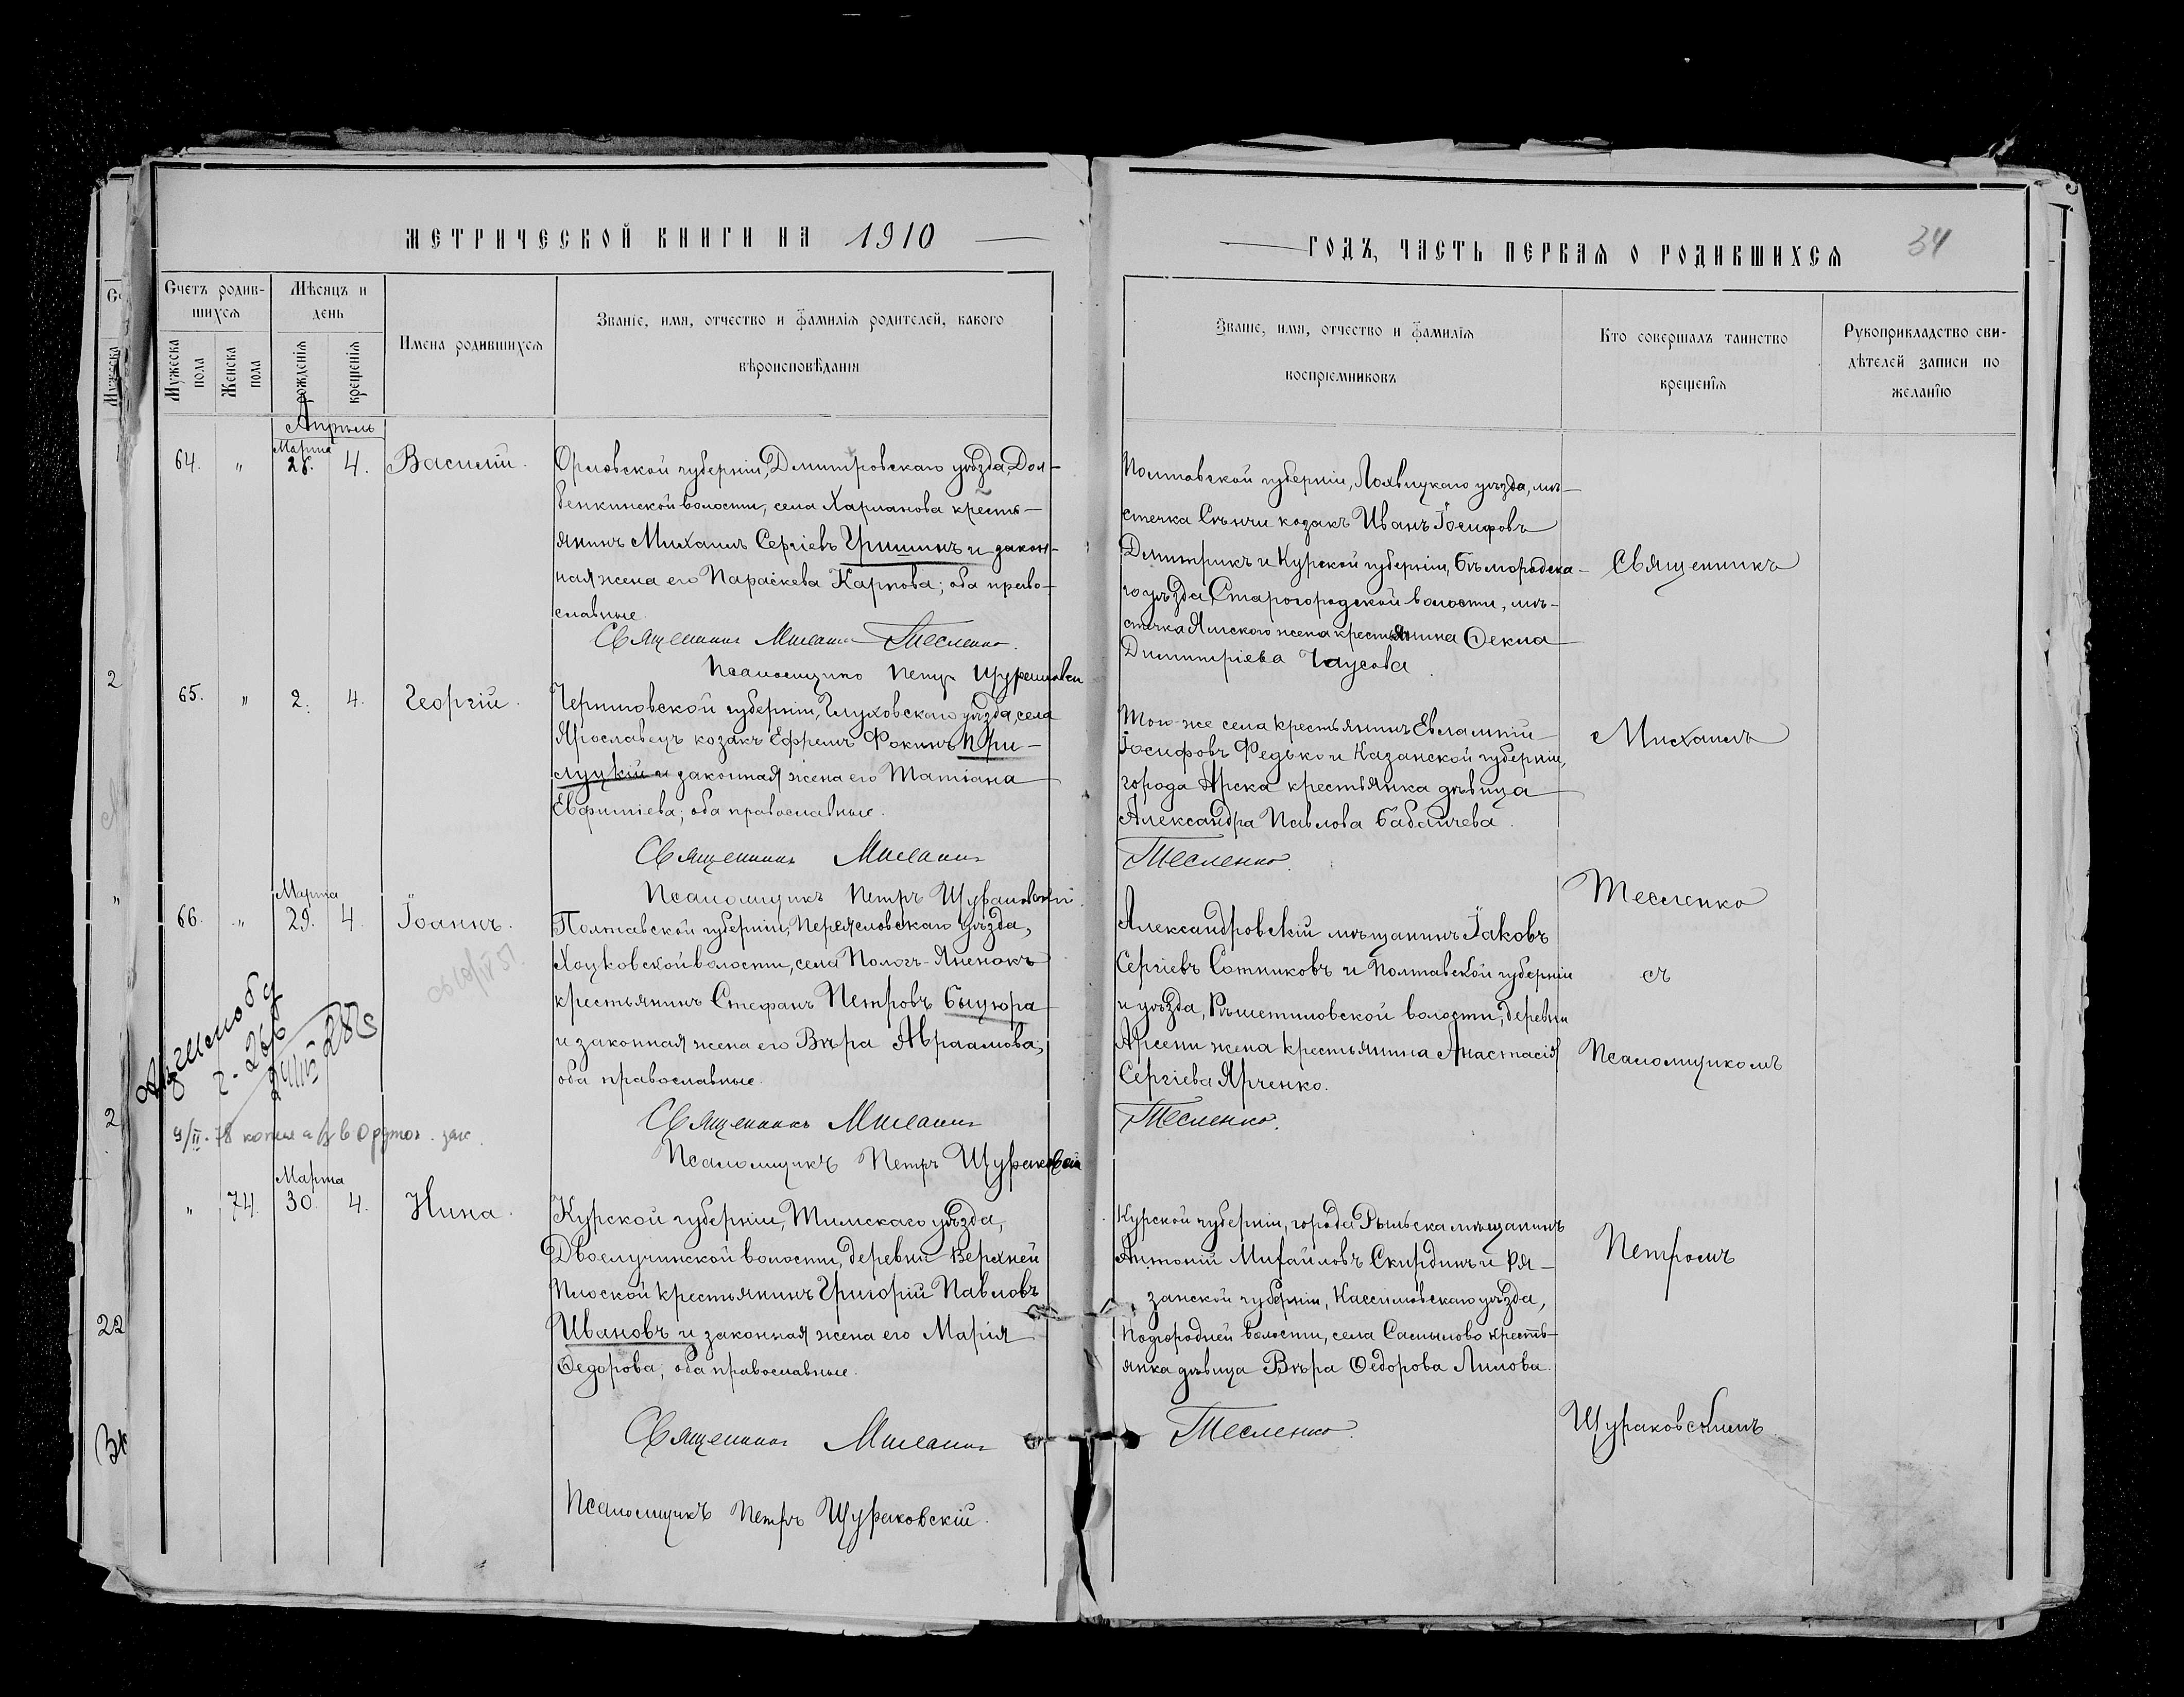 МЕТРИЧЕСКОЙ КНИГИ НА 1910
ГОДЪ, ЧАСТЬ ПЕРВАЯ О РОДИВШИХСЯ
34
Счетъ родив-
шихся
Мужеска пола
Женска пола
Мѣсяцъ и
день
рожденія
крещенія
Имена родившихся
Званіе, имя, отчество и фамилія родителей, какого
вѣроисповѣданія
Званіе, имя, отчество и фамилія
воспріемниковъ
Кто совершалъ таинство
крещенія
Рукоприкладство сви-
дѣтелей записи по
желанію
Апрѣль
Марта
64. " 28. 4. Василій.
Орловской губерніи, Дмитровскаго уѣзда, Дол-
бенкинской волости, села Харланова кресть-
янинъ Михаилъ Сергіевъ Гришинъ и закон-
ная жена его Параскева Карпова; оба право-
славные.
Священникъ Михаилъ Тесленко.
Псаломщикъ Петръ Щураковскій
Полтавской губерніи, Лохвицкаго уѣзда, мѣ-
стечка Сѣнчи козакъ Иванъ Іосифовъ
Дмитрикъ и Курской губерніи, Бѣлгородска-
го уѣзда, Старогородской волости, мѣ-
стечка Ямского жена крестьянина Ѳекла
Димитріева Чаусова.
65. " 2. 4. Георгій.
Черниговской губерніи, Глуховского уѣзда, села
Ярославецъ козакъ Ефремъ Фокинъ При-
луцкій и законная жена его Татіана
Евфиміева; оба православные.
Священникъ Михаилъ Тесленко.
Псаломщикъ Петръ Щураковскій.
Того-же села крестьянинъ Евлампій
Іосифовъ Федько и Казанской губерніи,
города Арска крестьянка дѣвица
Александра Павлова Бабаичева.
Марта
66. " 29. 4. Іоаннъ.
Полтавской губерніи, Переяславскаго уѣзда,
Хоцковской волости, села Пологъ-Яненокъ
крестьянинъ Стефанъ Петровъ Быцюра
и законная жена его Вѣра Авраамова;
оба православные.
Священникъ Михаилъ Тесленко.
Псаломщикъ Петръ Щураковскій
Александровскій мѣщанинъ Іаковъ
Сергіевъ Сотниковъ и Полтавской губерніи
и уѣзда, Рѣшетиловской волости, деревни
жена крестьянина Анастасія
Сергіева Ярченко.
9/II-78
Марта
" 74. 30. 4. Нина.
Курской губерніи, Тимскаго уѣзда,
Двоелучинской волости, деревни Верхней
Плоской крестьянинъ Григорій Павловъ
Ивановъ и законная жена его Марія
Ѳедорова; оба православные.
Священникъ Михаилъ Тесленко.
Псаломщикъ Петръ Щураковскій.
Курской губерніи, города Рыльска мѣщанинъ
Антоній Михайловъ Скирдинъ и Ря-
занской губерніи, Кассимовскаго уѣзда,
Подгородней волости, села Сасыково кресть-
янка дѣвица Вѣра Ѳедорова Лилова.
Священникъ
Михаилъ
Тесленко
съ
Псаломщикомъ
Петромъ
Щураковскимъ.